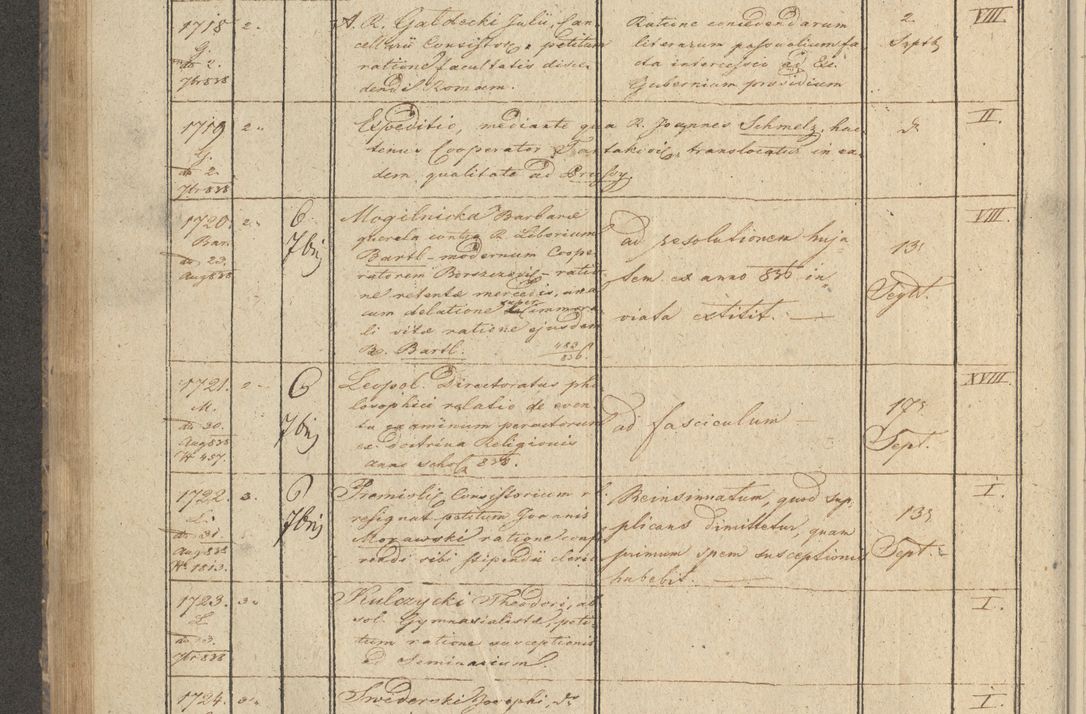 1718 2.
G.
do 2.
7br 838
A. R. Gałdecki Julii, Can-
cellarii Consistor. petitum
ratione facultatis disce-
dendi Romam.
Ratione concedendarum
literarum passualium fa-
cta intercessio ad Ex.
Gubernium praesidium
2.
Septb
VIII.
1719 2.
G.
do 2.
7br 838
Expeditio, mediante qua R. Joannes Schmelz, hac-
tenus Cooperator Tartakovi., translocatur in ea-
dem qualitate ad Brussy.
d.
II.
1720. 2.
Bar.
do 23.
Aug 838
6.
7bris
Mogilnicka Barbarae
querela contra R. Liborium
Bartl – modernum Coope-
ratorem Borszczovi. – ratio-
ne retentae mercedis, una
cum delatione super immora-
li vita ratione ejusdem
R. Bartl. 482/836.
ad resolutionem huja-
sem. ex anno 836 in
viata extitit. —
13
Septb.
VIII.
1721. 2.
M.
do 30.
Aug 838
N 457.
6
7bris
Leopol. Directoratus phi-
losophici relatio de even-
tu examinum peractorum
ex doctrina Religionis
anno schol. 838.
ad fasciculum –
17
Sept.
XVIII.
1722. 3.
L.
do 31.
Aug 838
N 1813.
6
7bris
Premisli. Consistorium rl.
resignat petitum Joannis
Morawski ratione conf-
rendi sibi stipendii cleric.
Reinsinuatum, quod sup-
plicans dimittetur, quam
primum spem susceptionis
habebit. —
13
Sept.
I.
1723. 3.
L.
do 3.
7br 838
Kulczycki Theodori, ab-
sol. Gymnasialistae, peti-
tum ratione susceptionis
ad Seminarium.
I.
1724. 3.
Swiderski Josephi, d.
I.